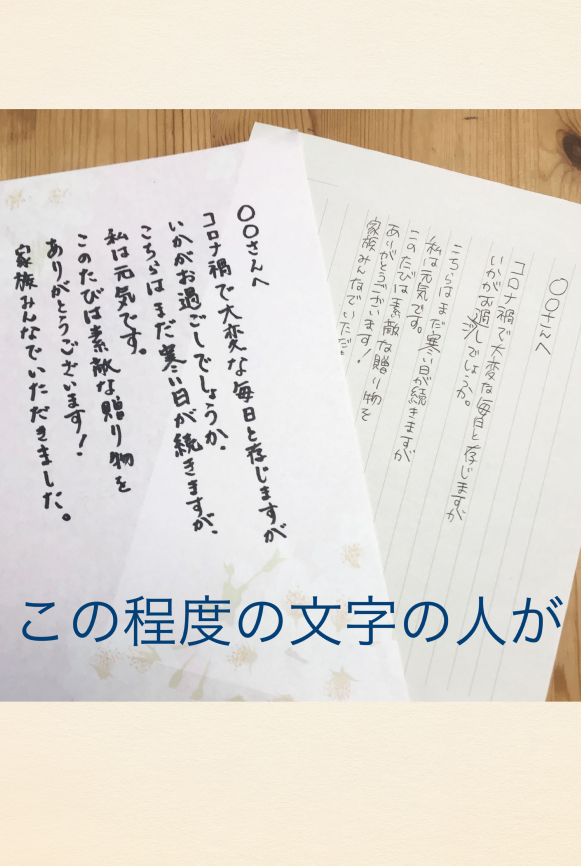 〇〇さんへ
コロナ禍で大変な毎日と存じますが
いかがお過ごしでしょうか。
こちらはまだ寒い日が続きますが
私は元気です。
このたびは素敵な贈り物を
ありがとうございます!
家族みんなでいただ
〇〇さんへ
コロナ禍で大変な毎日と存じますが
いかがお過ごしでしょうか.
こちらはまだ寒い日が続きますが、
私は元気です。
このたびは素敵な贈り物を
ありがとうございます!
家族みんなでいただきました。
この程度の文字の人が